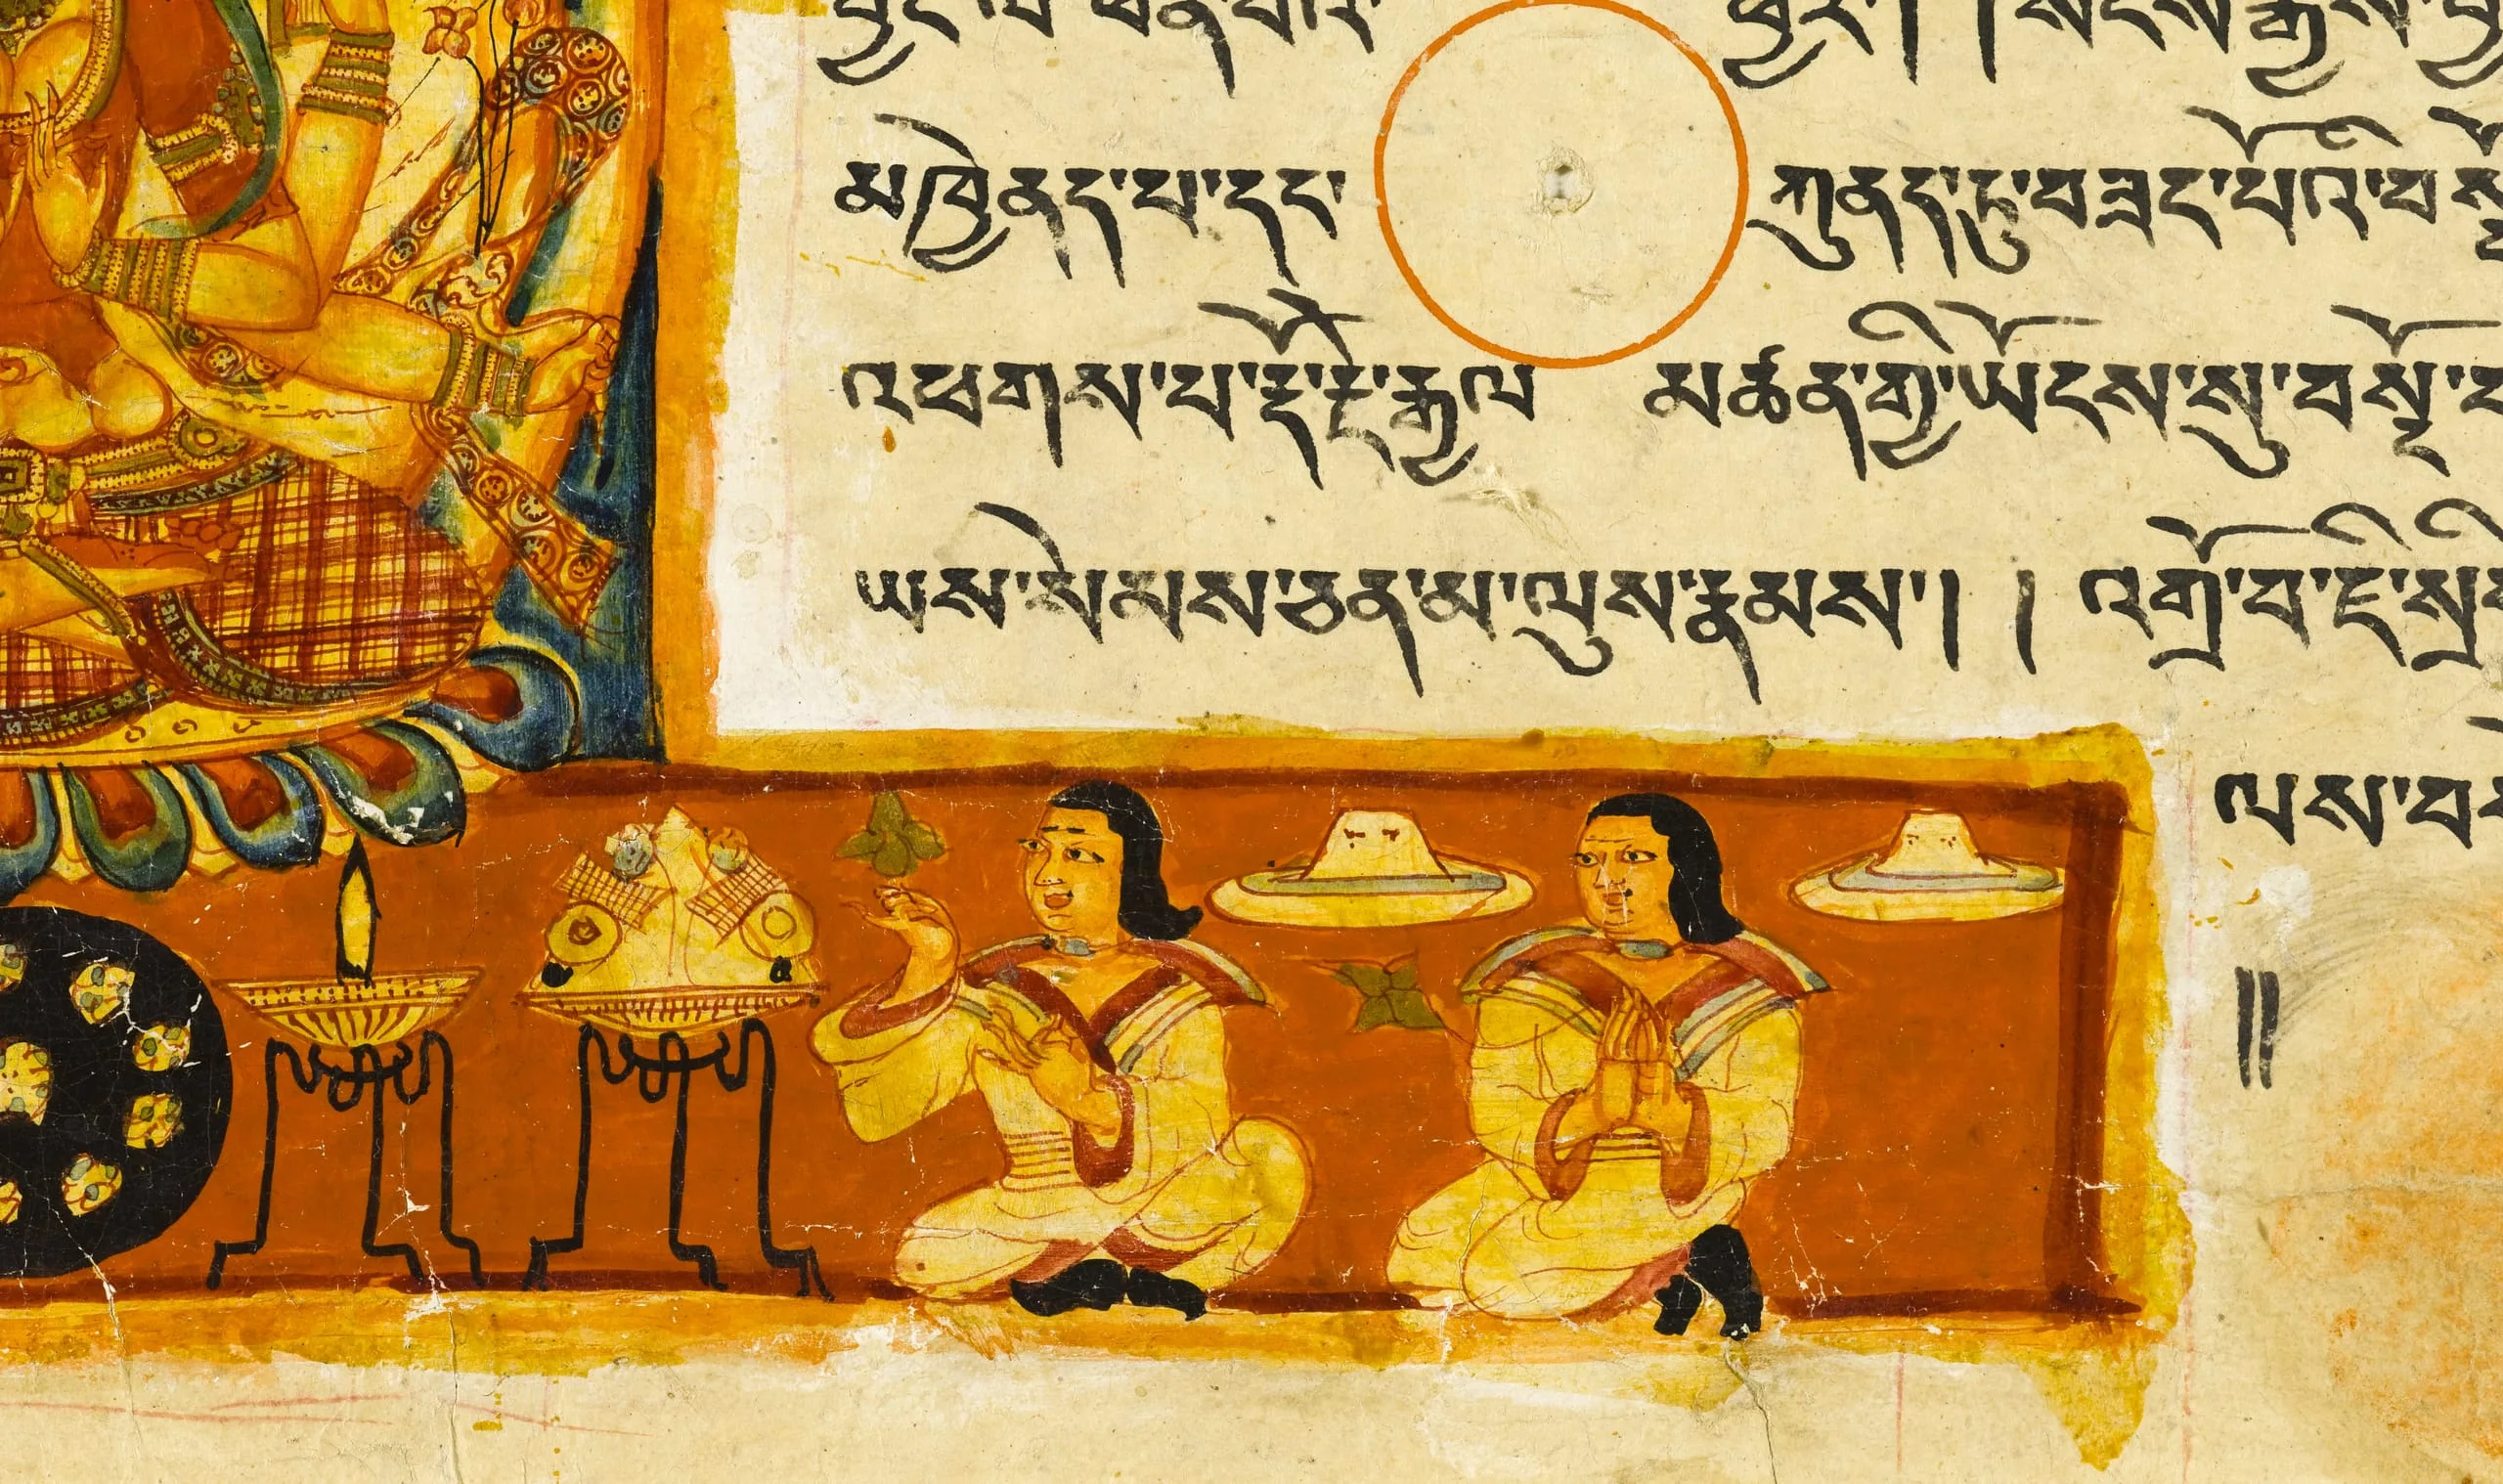 མཁྱེནད་པ་དང་ ཀུནད་ཏུ་བཟང་པོའི་བ
འཕགས་པ་རྡོ་རྗེ་རྒྱལ མཚན་གྱི་ཡོངས་སུ་བསྔོ་བ
ཡས་སེམས་ཅན་མ་ལུས་རྣམས་། །འགྲོ་བ་ཇི་སྲི
ལས་བ
༎